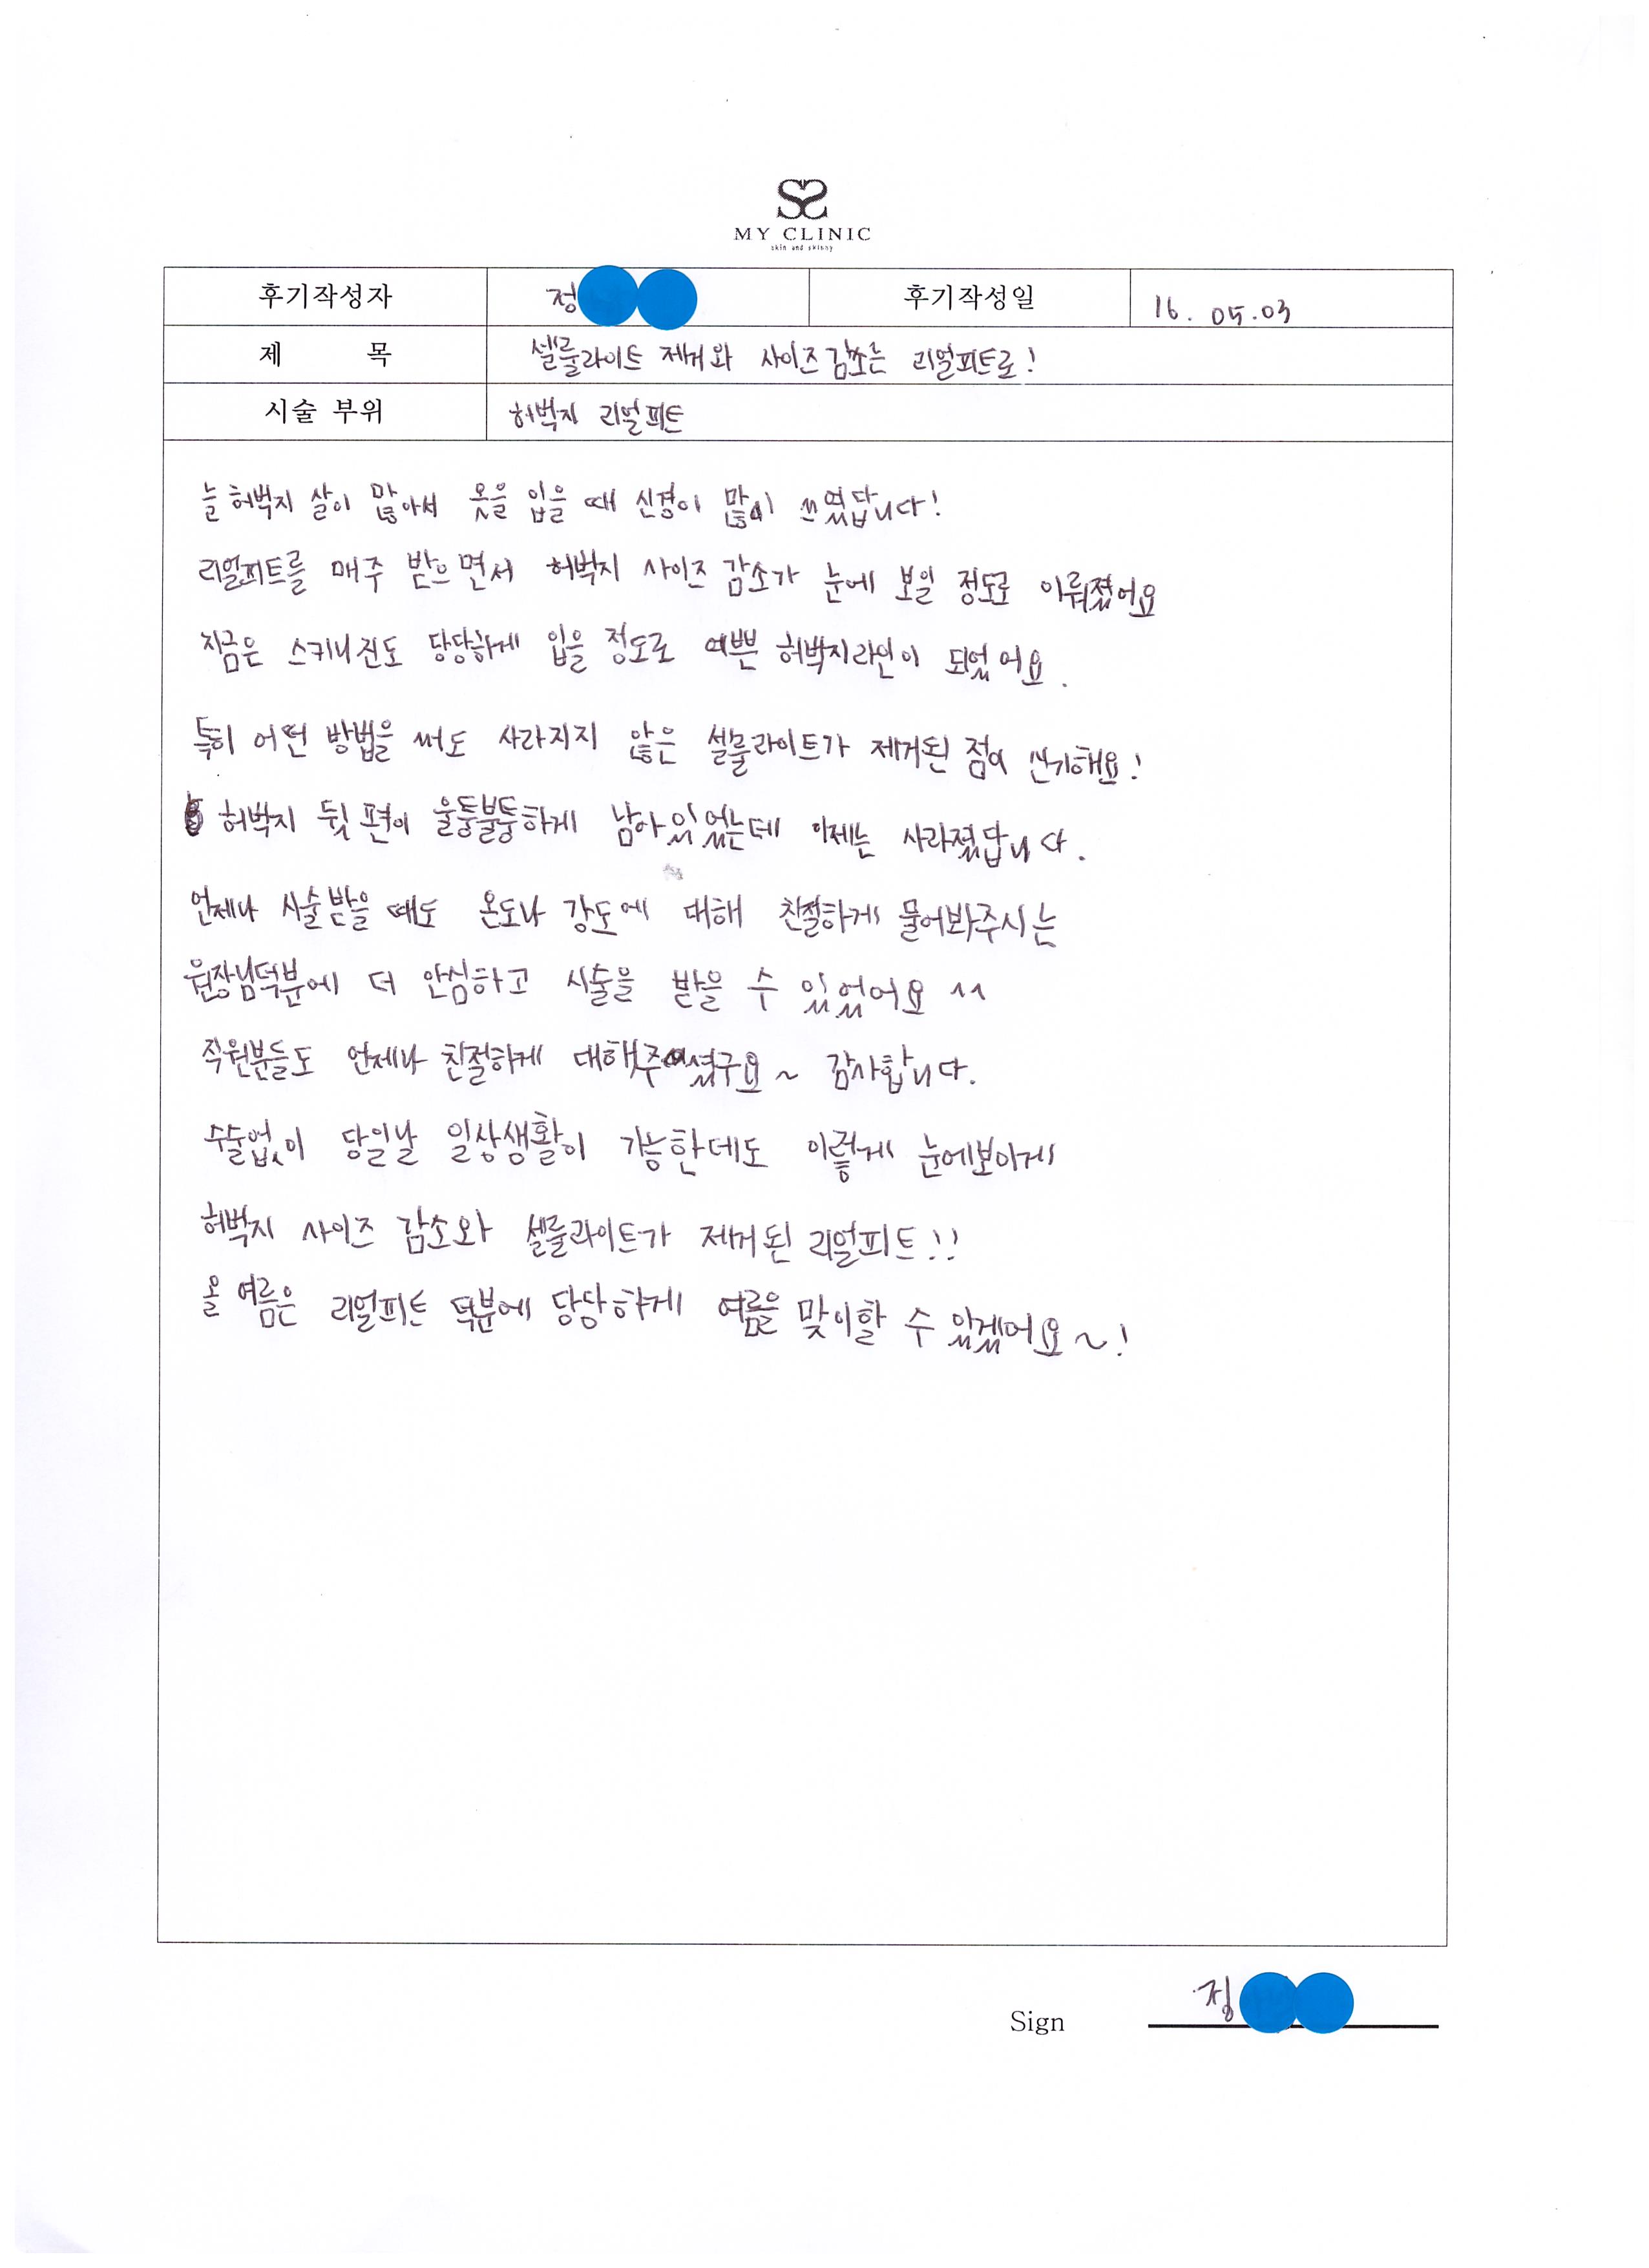 MY CLINIC
skin and skinny
후기작성자 정 후기작성일 16. 05. 03
제 목 셀룰라이트 제거와 사이즈감소는 리얼피트로!
시술 부위 허벅지 리얼피트
늘 허벅지 살이 많아서 옷을 입을 때 신경이 많이 쓰였답니다!
리얼피트를 매주 받으면서 허벅지 사이즈 감소가 눈에 보일 정도로 이뤄졌어요
지금은 스키니진도 당당하게 입을 정도로 예쁜 허벅지라인이 되었어요.
특히 어떤 방법을 써도 사라지지 않은 셀룰라이트가 제거된 점이 신기해요!
허벅지 뒷 편이 울퉁불퉁하게 남아있었는데 이제는 사라졌답니다.
언제나 시술받을 때도 온도나 강도에 대해 친절하게 물어봐주시는
원장님덕분에 더 안심하고 시술을 받을 수 있었어요 ^^
직원분들도 언제나 친절하게 대해주셨구요~ 감사합니다.
수술없이 당일날 일상생활이 가능한데도 이렇게 눈에보이게
허벅지 사이즈 감소와 셀룰라이트가 제거된 리얼피트!!
올 여름은 리얼피트 덕분에 당당하게 여름을 맞이할 수 있겠어요~!
Sign 정